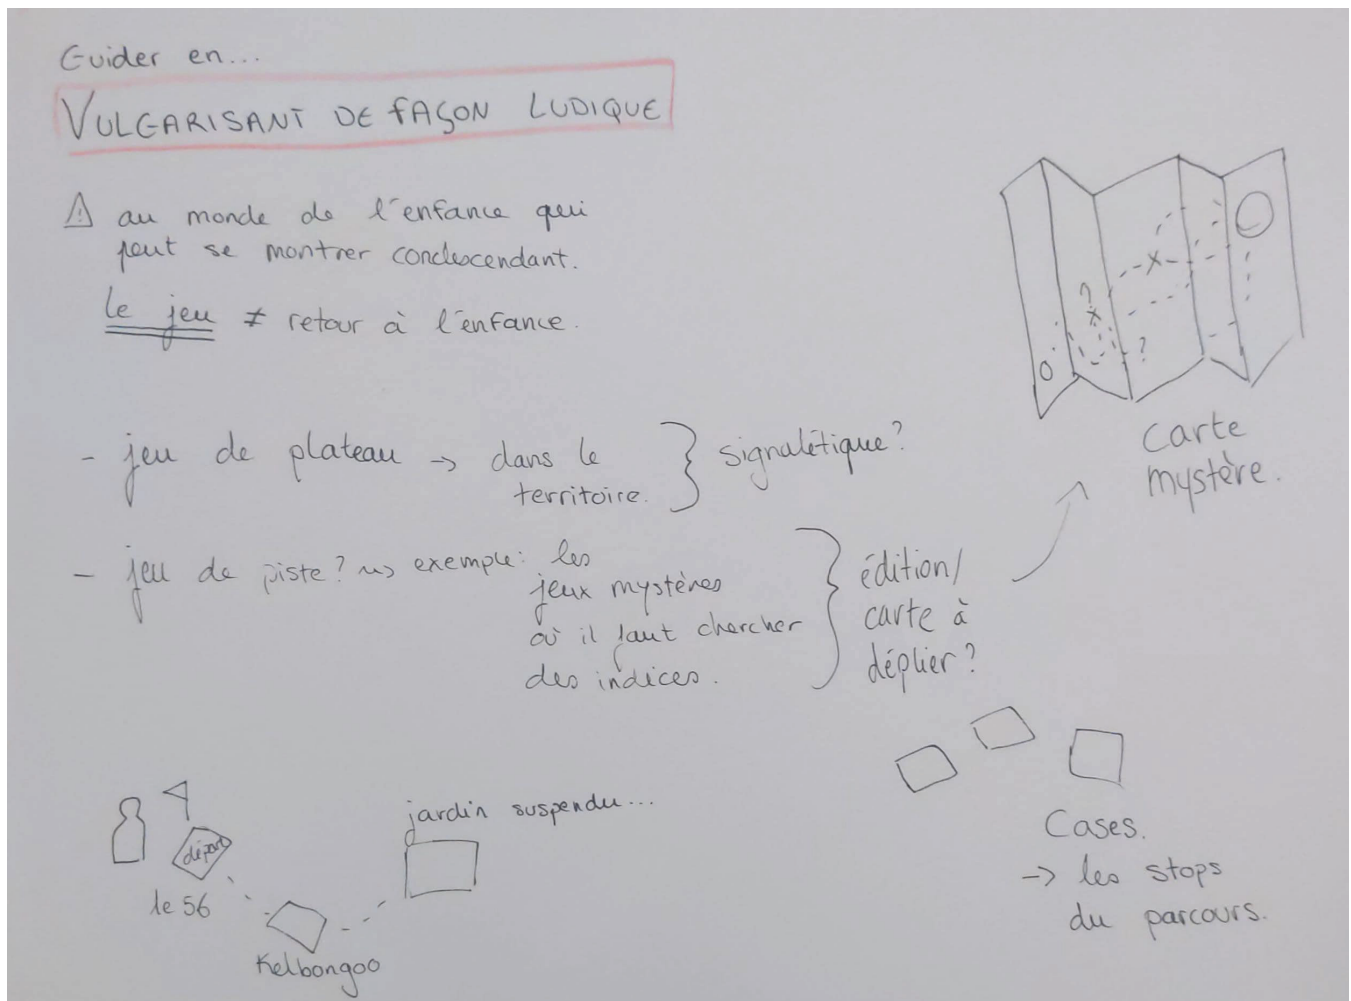 Guider en...
VULGARISANT DE FAÇON LUDIQUE
⚠ au monde de l'enfance qui
peut se montrer condescendant.
le jeu ≠ retour à l'enfance.
- jeu de plateau → dans le
territoire.
signalétique?
- jeu de piste? ⇝ exemple: les
jeux mystères
où il faut chercher
des indices.
édition/
carte à
déplier?
Carte
mystère.
?
?
jardin suspendu...
départ
le 56
Kelbongoo
Cases.
→ les stops
du parcours.